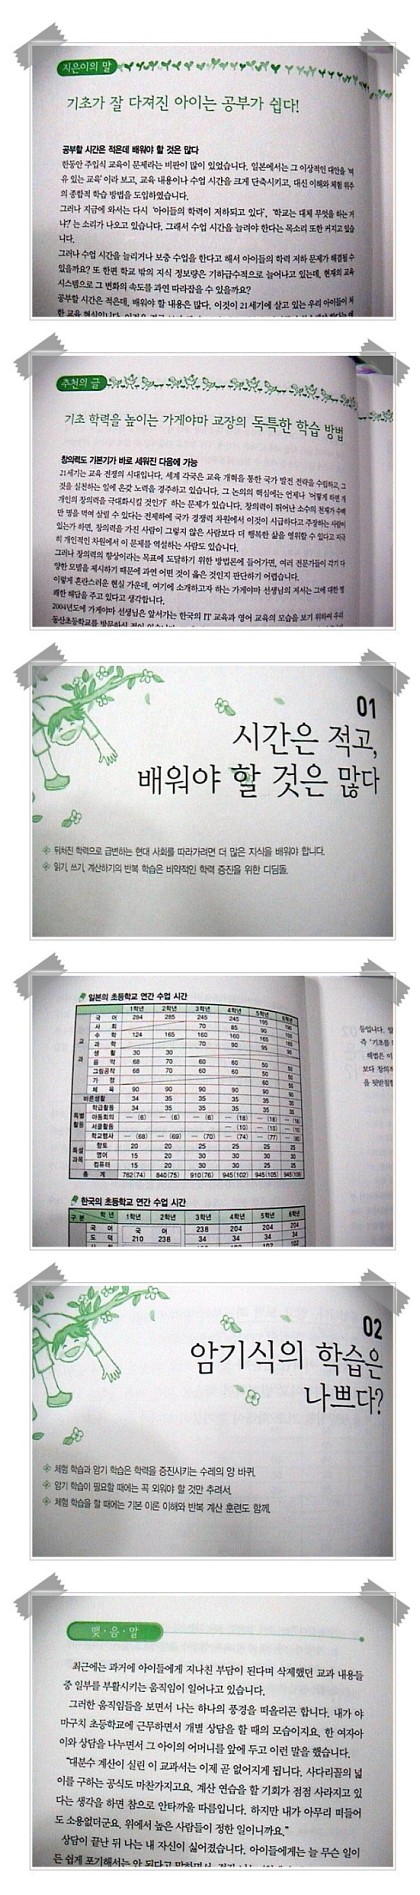 지은이의 말
기초가 잘 다져진 아이는 공부가 쉽다!
공부할 시간은 적은데 배워야 할 것은 많다
한동안 주입식 교육이 문제라는 비판이 많이 있었습니다. 일본에서는 그 이상적인 대안을 '여
유 있는 교육'이라 보고, 교육 내용이나 수업 시간을 크게 단축시키고, 대신 이해와 체험 위주
의 종합적 학습 방법을 도입하였습니다.
그러나 지금에 와서는 다시 '아이들의 학력이 저하되고 있다', '학교는 대체 무엇을 하는 거
냐?'는 소리가 나오고 있습니다. 그래서 수업 시간을 늘려야 한다는 목소리 또한 커지고 있습
니다.
그러나 수업 시간을 늘리거나 보충 수업을 한다고 해서 아이들의 학력 저하 문제가 해결될 수
있을까요? 또 한편 학교 밖의 지식 정보량은 기하급수적으로 늘어나고 있는데, 현재의 교육
시스템으로 그 변화의 속도를 과연 따라잡을 수 있을까요?
공부할 시간은 적은데, 배워야 할 내용은 많다. 이것이 21세기에 살고 있는 우리 아이들이 처
한 교육 현실입니다.
추천의 글
기초 학력을 높이는 가게야마 교장의 독특한 학습 방법
창의력도 기본기가 바로 세워진 다음에 가능
21세기는 교육 전쟁의 시대입니다. 세계 각국은 교육 개혁을 통한 국가 발전 전략을 수립하고, 그
것을 실천하는 일에 온갖 노력을 경주하고 있습니다. 그 논의의 핵심에는 언제나 '어떻게 하면 개
개인의 창의력을 극대화시킬 것인가' 하는 문제가 있습니다. 창의력이 뛰어난 소수의 천재가 수백
만 명을 먹여 살릴 수 있다는 전제하에 국가 경쟁력 차원에서 이것이 시급하다고 주장하는 사람이
있는가 하면, 창의력을 가진 사람이 그렇지 않은 사람보다 더 행복한 삶을 영위할 수 있다고 지극
히 개인적인 차원에서 이 문제를 역설하는 사람도 있습니다.
그러나 창의력의 향상이라는 목표에 도달하기 위한 방법론에 들어가면, 여러 전문가들이 각기 다
양한 모델을 제시하기 때문에 과연 어떤 것이 옳은 것인지 판단하기 어렵습니다.
이렇게 혼란스러운 현실 가운데, 여기에 소개하고자 하는 가게야마 선생님의 저서는 그에 대한 명
쾌한 해답을 주고 있다고 생각합니다.
2004년도에 가게야마 선생님은 앞서가는 한국의 IT 교육과 영어 교육의 모습을 보기 위하여 우리
동산초등학교를 방문하신 적이
01
시간은 적고,
배워야 할 것은 많다
뒤처진 학력으로 급변하는 현대 사회를 따라가려면 더 많은 지식을 배워야 합니다.
읽기, 쓰기, 계산하기의 반복 학습은 비약적인 학력 증진을 위한 디딤돌.
일본의 초등학교 연간 수업 시간
1학년 2학년 3학년 4학년 5학년 6학년
교과
국 어 284 285 245 245 195 190
사 회 70 85 90 100
수 학 124 165 160 160 160 160
과 학 70 90 95 95
생 활 30 30
음 악 68 70 60 60 50 50
그림공작 68 70 60 60 50 50
가 정 60 50
체 육 90 90 90 90 90 90
바른생활 34 35 35 35 35 35
특별 활동
학급활동 34 35 35 35 35 35
아동회의 — (6) — (6) — (6) — (18) — (18) — (18)
서클활동 — (10) — (13)
학교행사 — (68) — (69) — (70) — (74) — (77)
특설 과목
향토 20 20 25 25 25 25
영어 15 20 30 30 30 30
컴퓨터 15 20 30 30 25 25
총 계 782 (74) 840 (75) 910 (76) 945 (102) 945 (105) 945
한국의 초등학교 연간 수업 시간
구 분 학년 1학년 2학년 3학년 4학년 5학년 6학년
국 어 국 어 210 238 238 204 204 204
도 덕 34 34 34 34
102 102
02
암기식의 학습은
나쁘다?
체험 학습과 암기 학습은 학력을 증진시키는 수레의 양 바퀴.
암기 학습이 필요할 때에는 꼭 외워야 할 것만 추려서.
체험 학습을 할 때에는 기본 이론 이해와 반복 계산 훈련도 함께.
맺·음·말
최근에는 과거에 아이들에게 지나친 부담이 된다며 삭제했던 교과 내용들
중 일부를 부활시키는 움직임이 일어나고 있습니다.
그러한 움직임들을 보면서 나는 하나의 풍경을 떠올리곤 합니다. 내가 야
마구치 초등학교에 근무하면서 개별 상담을 할 때의 모습이지요. 한 여자아
이와 상담을 나누면서 그 아이의 어머니를 앞에 두고 이런 말을 했습니다.
"대분수 계산이 실린 이 교과서는 이제 곧 없어지게 됩니다. 사다리꼴의 넓
이를 구하는 공식도 마찬가지고요. 계산 연습을 할 기회가 점점 사라지고 있
다는 생각을 하면 참으로 안타까울 따름입니다. 하지만 내가 아무리 떠들어
도 소용없더군요. 위에서 높은 사람들이 정한 일이니까요."
상담이 끝난 뒤 나는 내 자신이 싫어졌습니다. 아이들에게는 늘 무슨 일이
든 쉽게 포기해서는 안 된다고 말하면서,